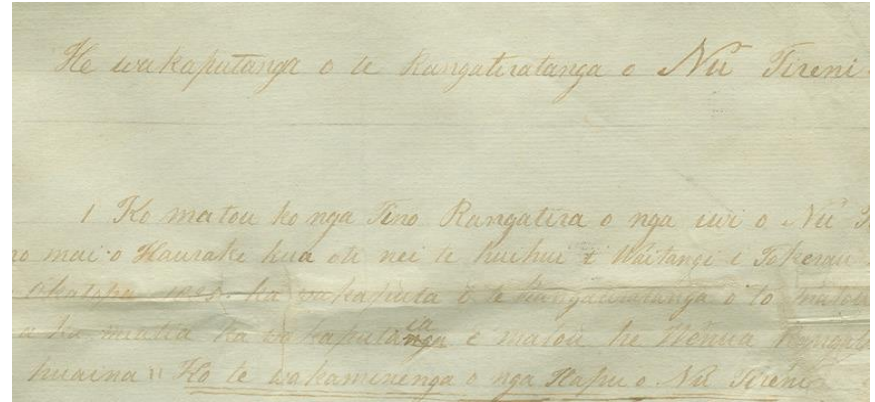 He wakaputanga o te Rangatiratanga o Nu Tireni
1 Ko matou ko nga Tino Rangatira o nga iwi o Nu
mai o Haurake kua oti nei te huihui i Waitangi i Tokerau
ka wakaputa i te Rangatiratanga o to matou
a ka meatia ka wakaputaia e matou he Wenua
huaina Ko te wakaminenga o nga Hapu o Nu Tireni